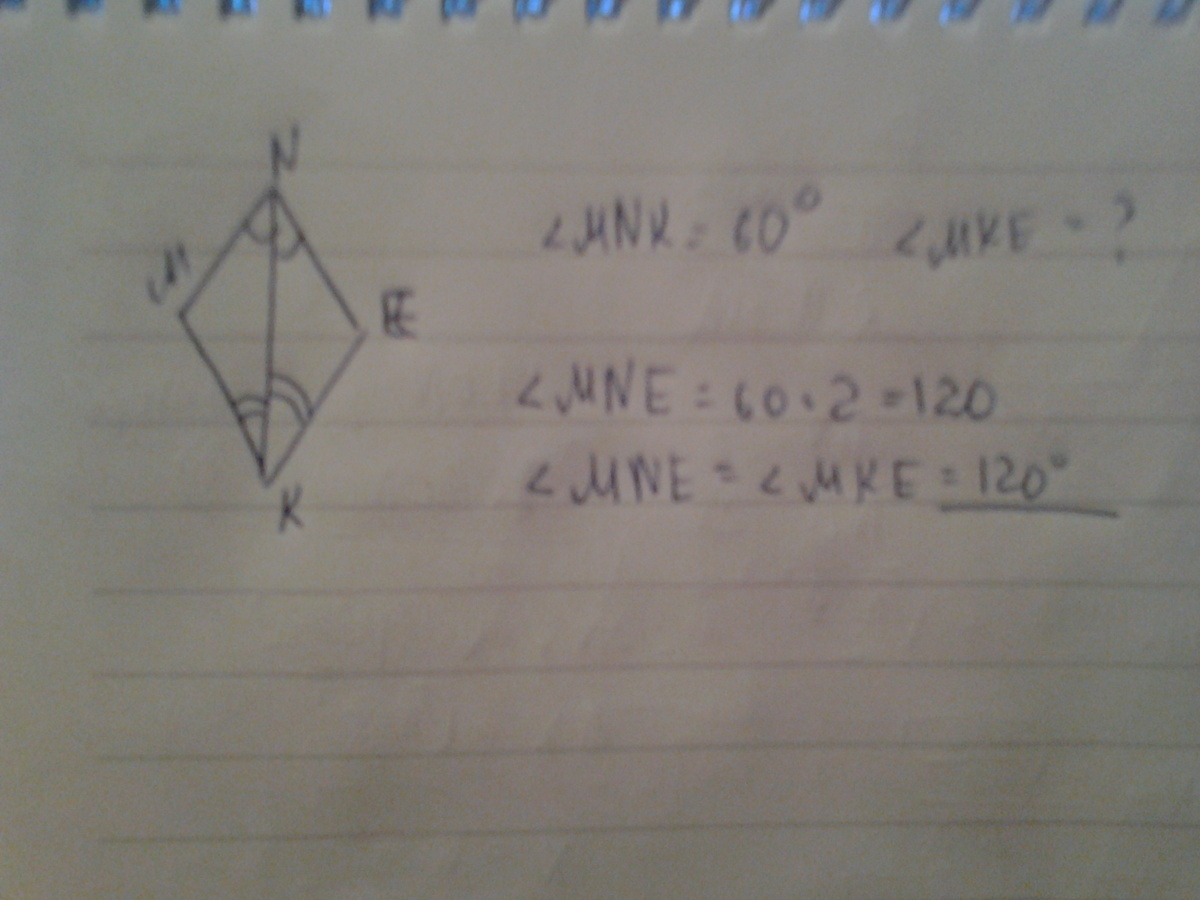 N
∠MNK = 60° ∠MKE = ?
M
E
∠MNE = 60 · 2 = 120
∠MNE = ∠MKE = 120°
K